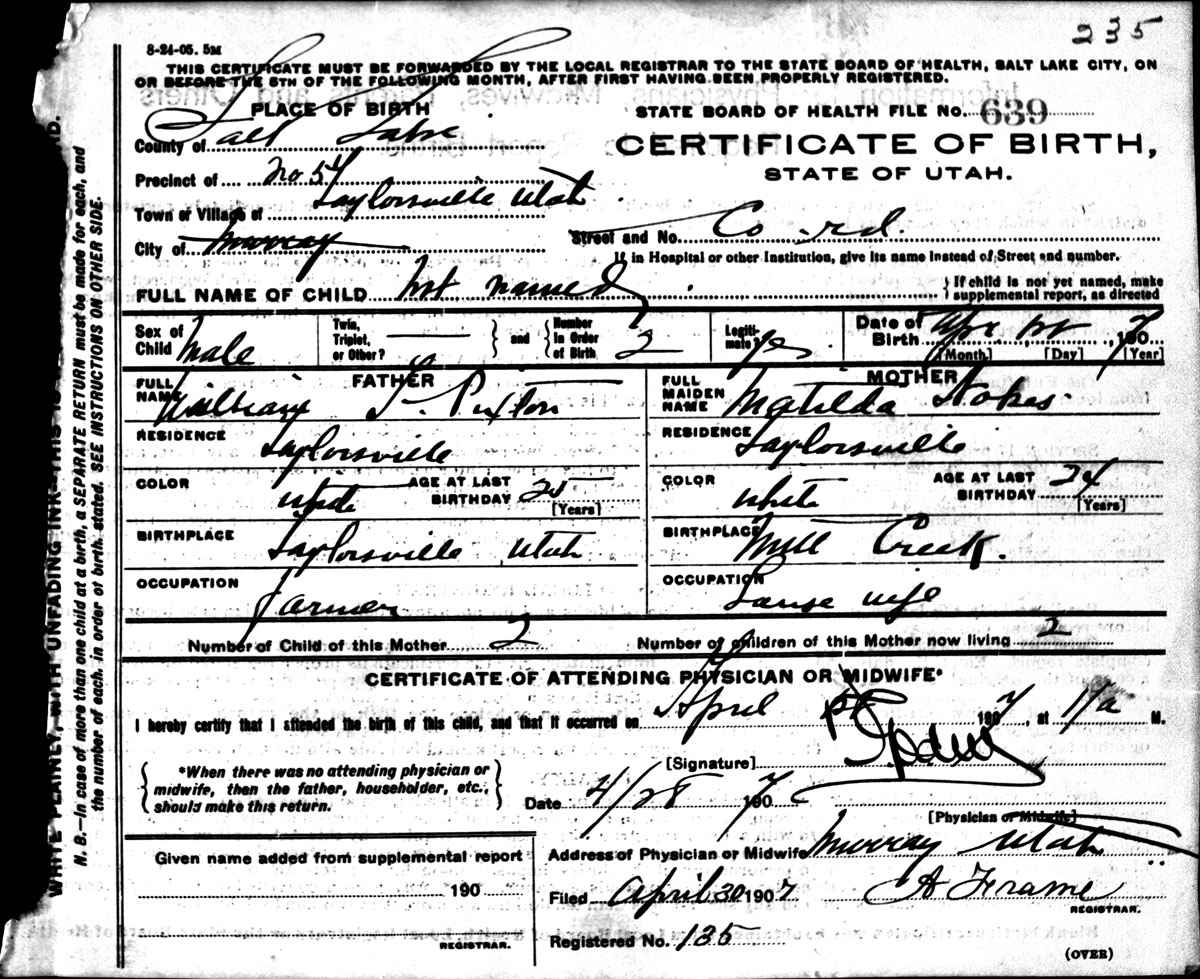 235
8-24-05. 5M
THIS CERTIFICATE MUST BE FORWARDED BY THE LOCAL REGISTRAR TO THE STATE BOARD OF HEALTH, SALT LAKE CITY, ON
OR BEFORE THE 5TH OF THE FOLLOWING MONTH, AFTER FIRST HAVING BEEN PROPERLY REGISTERED.
PLACE OF BIRTH
STATE BOARD OF HEALTH FILE No. 639
County of Salt Lake
CERTIFICATE OF BIRTH,
STATE OF UTAH.
Precinct of no 54
Town or Village of Taylorsville Utah
City of Murray
Street and No. Co rd.
If in Hospital or other Institution, give its name instead of Street and number.
FULL NAME OF CHILD Not named
If child is not yet named, make
supplemental report, as directed
Sex of Child Male
Twin, Triplet, or Other?
and
Number in Order of Birth 2
Legitimate? yes
Date of Birth Apr 1907
[Month] [Day] [Year]
FATHER
FULL NAME William
MOTHER
FULL MAIDEN NAME Matilda
RESIDENCE Taylorsville
RESIDENCE Taylorsville
COLOR white
AGE AT LAST BIRTHDAY 25
[Years]
COLOR white
AGE AT LAST BIRTHDAY 24
[Years]
BIRTHPLACE Taylorsville Utah
BIRTHPLACE Mill Creek.
OCCUPATION Farmer
OCCUPATION House wife
Number of Child of this Mother 2
Number of children of this Mother now living 2
CERTIFICATE OF ATTENDING PHYSICIAN OR MIDWIFE*
I hereby certify that I attended the birth of this child, and that it occurred on April 1907, at 11 a M.
*When there was no attending physician or
midwife, then the father, householder, etc.,
should make this return.
[Signature]
Date 4/28 1907
[Physician or Midwife]
Given name added from supplemental report
190
REGISTRAR.
Address of Physician or Midwife Murray Utah
Filed April 30 1907 A Frame
REGISTRAR.
Registered No. 135
(OVER)
WRITE PLAINLY, WITH UNFADING INK—THIS IS
N. B.—In case of more than one child at a birth, a SEPARATE RETURN must be made for each, and
the number of each, in order of birth, stated. SEE INSTRUCTIONS ON OTHER SIDE.